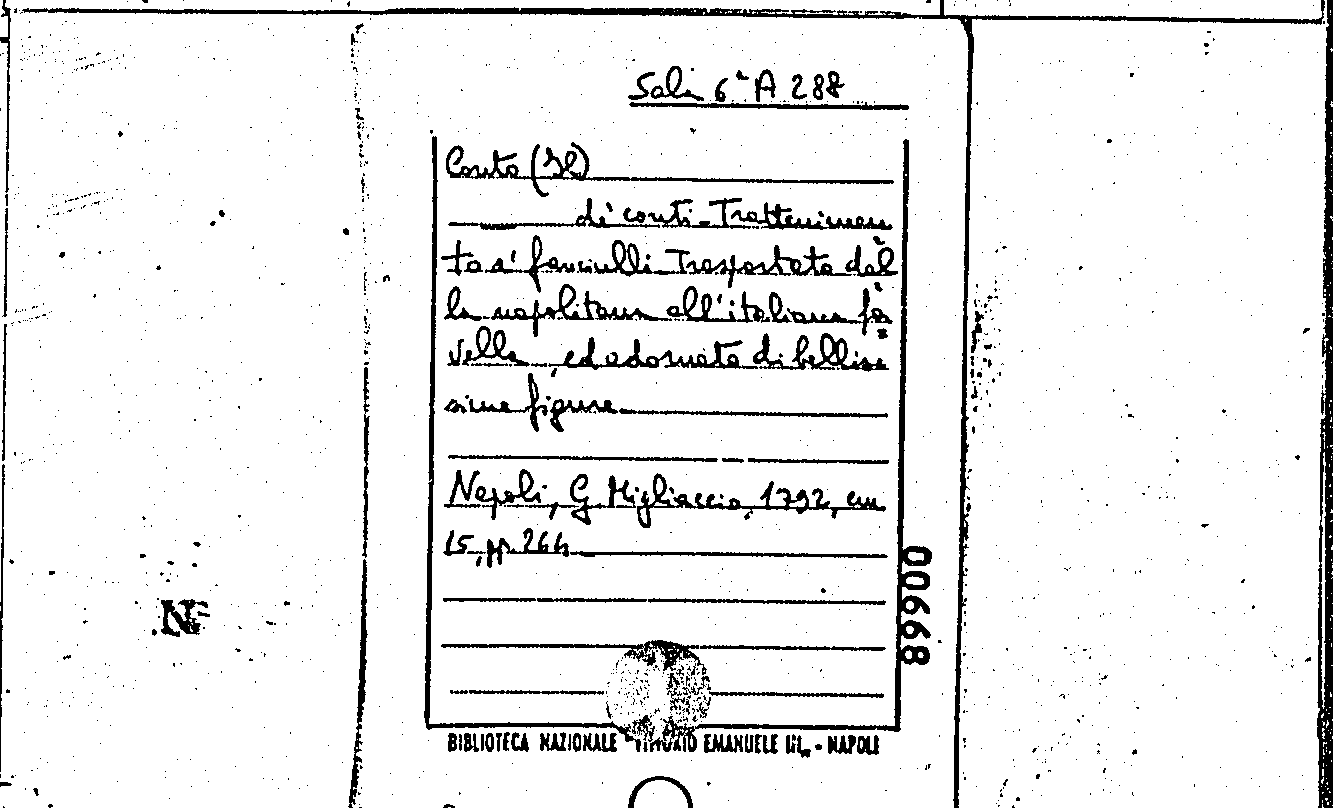 Sala 6ª A 288
Conto (Il)
di conti - Trattenimen
to a' fanciulli. Trasportato dal
la napolitana all'italiana fa
vella, ed adornato di bellis
sime figure.
Napoli, G. Migliaccio, 1792, cm
15, pp. 264
00668
Nº
BIBLIOTECA NAZIONALE "VITTORIO EMANUELE III„ - NAPOLI